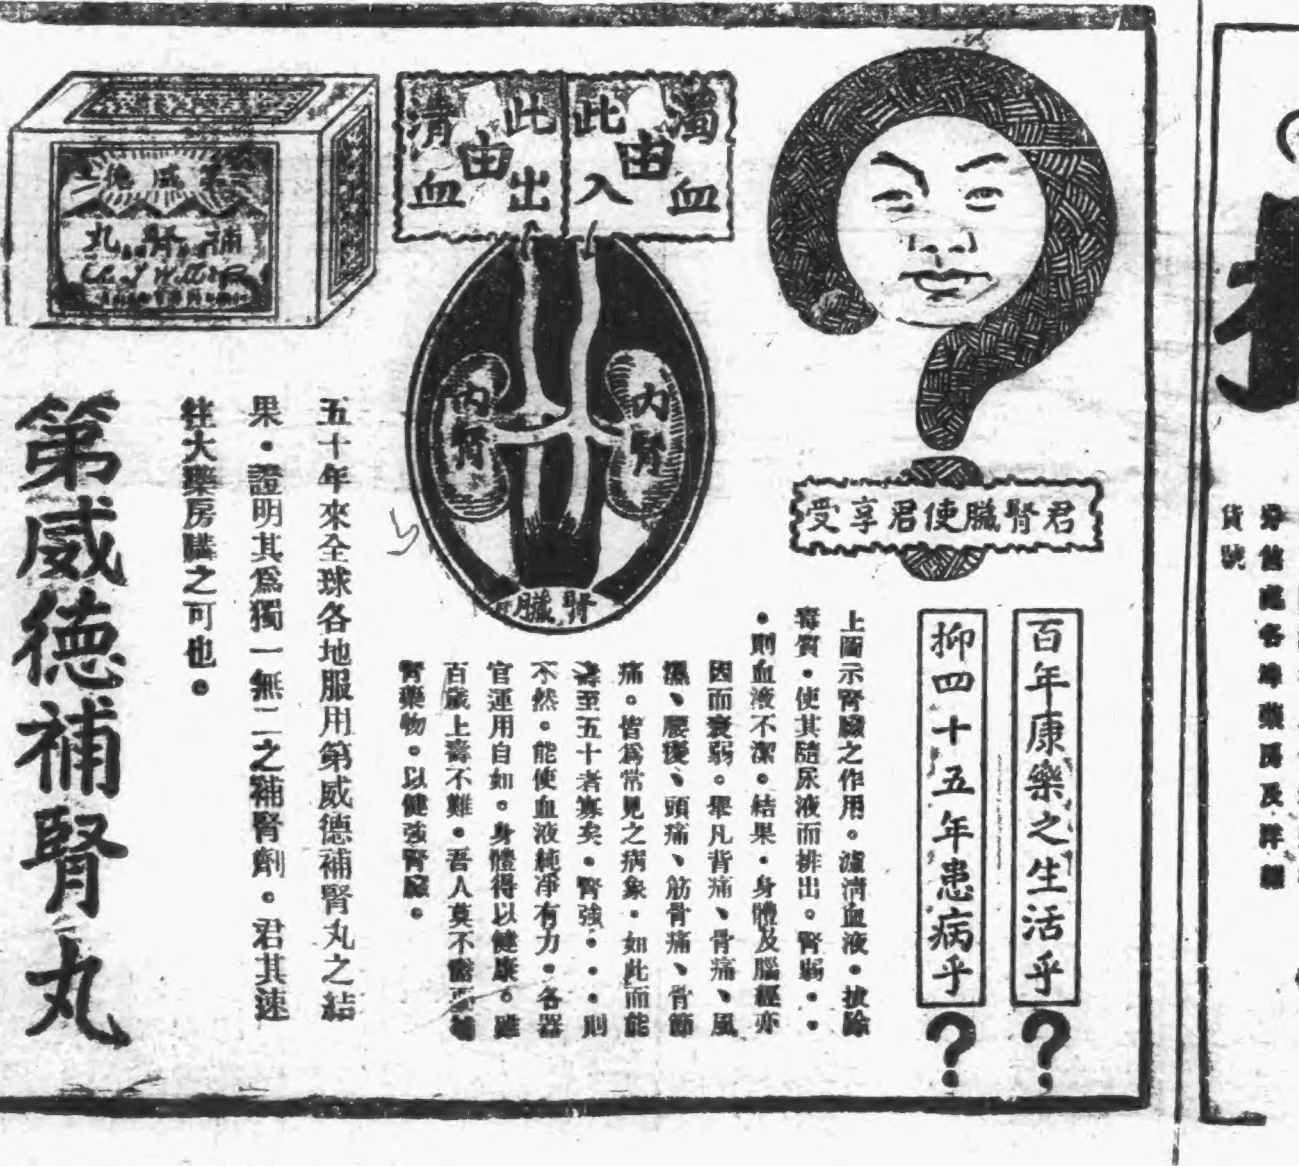 君腎臟使君享受
百年康樂之生活乎?
抑四十五年患病乎?
濁血由此入
清血由此出
內腎
內腎
腎臟
上圖示腎臟之作用。濾清血液。拔除
毒質。使其隨尿液而排出。腎弱。。
。則血液不潔。結果。身體及腦經亦
因而衰弱。舉凡背痛、骨痛、風
濕、腰痠、頭痛、筋骨痛、骨節
痛。皆爲常見之病象。如此而能
壽至五十者寡矣。腎強。。。則
不然。能使血液純淨有力。各器
官運用自如。身體得以健康。雖
百歲上壽不難。吾人莫不需要補
腎藥物。以健強腎臟。
五十年來全球各地服用第威德補腎丸之結
果。證明其爲獨一無二之補腎劑。君其速
往大藥房購之可也。
第威德
補腎丸
第威德補腎丸
分售處各埠藥房及洋
貨號